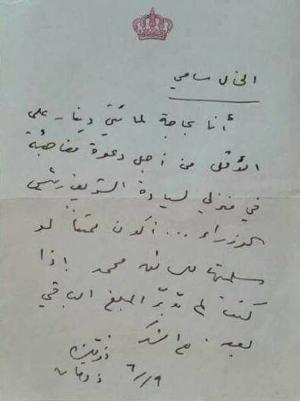 الخال سامي
أنا بحاجة لمائتي دينار على
الأقل من أجل دعوة مفاجئة
في منزلي لسيادة الشريف رئيس
الوزراء ... أكون ممتنا لو
سلمتها محمد إذا
كنت لم تدبّر المبلغ الباقي
بعد . مع الشكر
٦/١٩